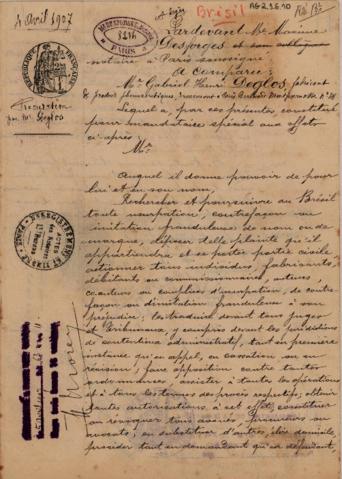 4 Avril 1907
Brésil
AG 2.9.6.10
Me DESFORGES, NOTAIRE
PARIS
Par devant Me Maxime
Desforges et son collègue
notaires à Paris soussignés
A comparu:
Mr Gabriel Henri Deglos, fabricant
de produits pharmaceutiques, demeurant à Paris Boulevard Montparnasse
Lequel a, par ces présentes, constitué
pour mandataire spécial aux effets
ci-après:
Mr
RÉPUBLIQUE FRANÇAISE
Procuration
par Mr Deglos
Auquel il donne pouvoir de pour
lui et en son nom,
Rechercher et poursuivre au Brésil
toute usurpation, contrefaçon ou
imitation frauduleuse de nom ou de
marque, déposer telle plainte qu'il
appartiendra et se porter partie civile
actionner tous individus, fabricants,
débitants ou commissionnaires, auteurs
co-auteurs ou complices d'usurpation, de contre
façon ou d'imitation frauduleuse à son
préjudice; les traduire devant tous juges
et Tribunaux, y compris devant les juridictions
de contentieux administratif, tant en première
instance qu'en appel, en cassation ou en
révision; faire opposition contre toutes
ordonnances, assister à toutes les opérations
et à tous les termes des procès respectifs; obtenir
toutes autorisations à cet effet, constituer
ou révoquer tous avoués, procureurs ou
avocats; en substituer d'autres, élire domicile
procéder tant en demandant qu'en défendant,
ENREGISTREMENT ET TIMBRE
ACTES
PARIS